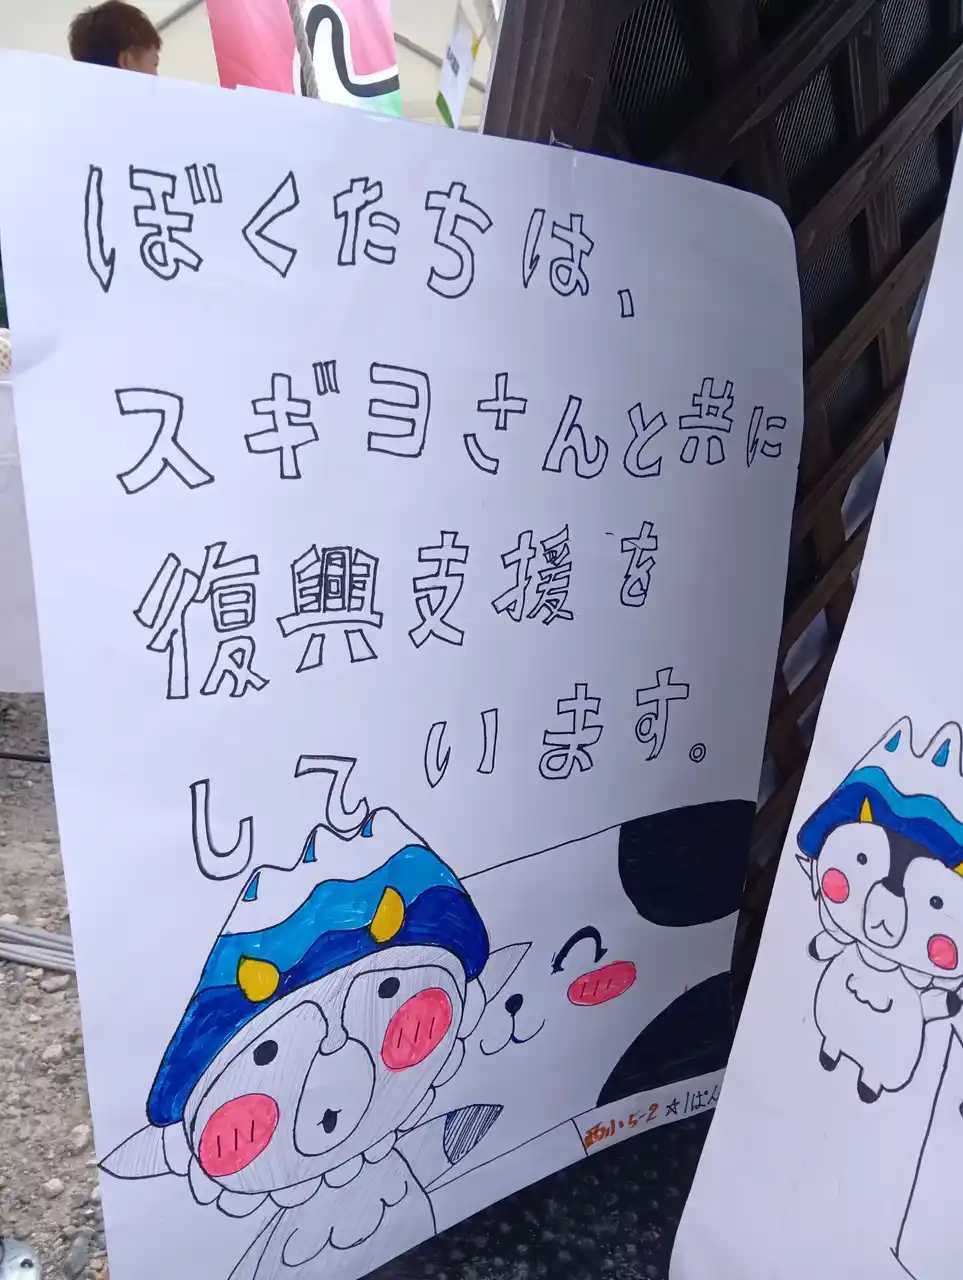 ぼくたちは、
スギヨさんと共に
復興支援を
しています。
西小5-2☆1ぱん